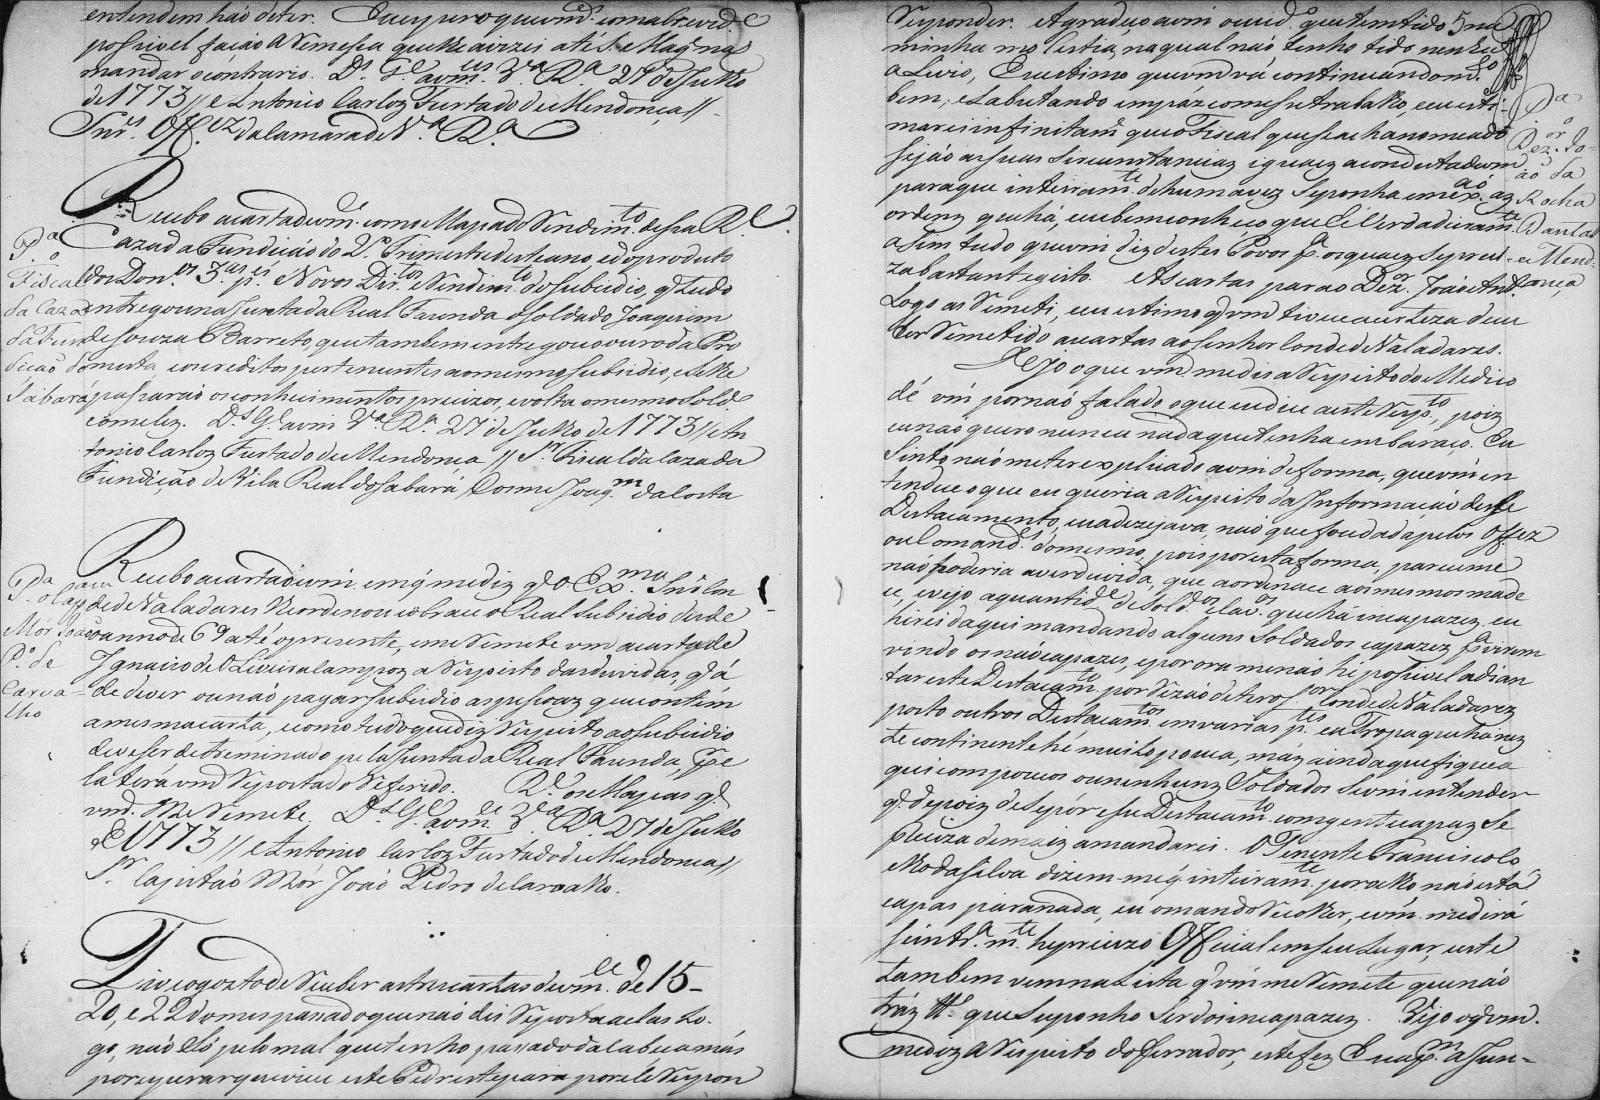 entendem haó deter. Eu espero que vm.ces com abrevid.e
possivel façaó a Remessa que lhe avizei até S. Mag.e naó
mandar o contrario. D.s G.e a vm.ces V.a R.a 27 de Julho
de 1773 // Antonio Carlos Furtado de Mendonça //
Snr.s Off.ez da Camara de V.a R.a
Recebo a carta de vm. com o Mapa do Rendim.to dessa R.l
Caza da Fundiçaó do 2.o Trimestre deste anno e do produto
dos Don.os 3.as p.es e Novos Dir.tos e Rendim.to do Subsidio, q. tudo
entregou na Junta da Real Fazenda o Soldado Joaquim
de Souza Barreto, que tambem entregou o ouro da Pro
mesta e os creditos pertencentes ao mesmo Subsidio, e se lhe
passaraó os conhecimentos precizos, e volta o mesmo Sold.o
com elez. D.s G.e a vm V.a R.a 27 de Julho de 1773 // An
tonio Carlos Furtado de Mendonça // S.r Fiscal da Caza da
Fundiçaó de Vila Real do Sabará, Cosme Joaq.m da Costa
P.a o
Fiscal
da Caza
da Fun
diçaó do
Sabará
Recebo a carta de vm. em q. me diz q. o Ex.mo Snr. Con
de de Valadares lhe ordenou cobrace o Real Subsidio desde
o anno de 69 até o prezente, e me Remete vm a carta de
Ignacio de Oliveira Campos a Respeito das duvidas, q. á
de dever ou naó pagar subsidio as pessoas que contém
a mesma carta, e como tudo que diz Respeito ao Subsidio
deve ser detreminado pela Junta da Real Fazenda, p.r e
la terá vm Resposta do Referido. R.e os Mapas q.
vm. me Remete. D.s G.e a vm. V.a R.a 27 de Julho
de 1773 // Antonio Carlos Furtado de Mendonça //
S.r Capitaó Mór Joaó Pedro de Carvalho.
P.a o Cap.am
Mór Joaó
P.o de
Carva=
lho
Tive o gosto de Receber as tres cartas de vm.ce de 15 -
20, e 22 do mes passado que naó dei Resposta a elas lo-
go, naó só pelo mal que tenho passado da cabeça mas
por esperar que viece este Pedreste para por ele Respon
Responder. Agradeço a vm o cuid.o que tem tido na
minha molestia, na qual naó tenho tido nenhum
alivio, Eu estimo que vm vá continuando m.to
bem, e labutando em páz com esse trabalho, e eu esti-
marei infinitam.te que o Fiscal que se acha nomeado
sejaó as suas sircunstancias iguaez a conducta de vm
para que inteiram.te de huma vez se ponha em ex.aó as
ordenz que há, eu bem conheço que hé verdadeiram.te
asim tudo que vm diz destes Povos p.a os quaez se preci=
za bastante geito. As cartas para o Dez.or Joaó Ant.o
Logo as Remeti, eu estimo q. vm tivece a certeza de eu
ter Remetido a cartas ao Senhor Conde de Valadares.
Vejo o que vm me dis a Respeito do Medico
dé vm por naó falado o que eu dice a este Resp.to, pois
eu naó quero nunca nada que tenha embaraço. Eu
sinto naó me ter explicado a vm de forma, que vm en
tendece o que eu queria a Respeito da Informaçaó desse
Destacamento, eu a dezejava, naó que foce dada pelos Offez
ou Comand.e do mesmo, pois por esta forma, parecia me
naó poderia aver duvida, que a ordenace aos mesmos mada
ce, e vejo a quantid.e de Sold.os e Cav.os que há incapazes. eu
hirei daqui mandando alguns Soldados capazes p.a virem
vindo os naó capazes, e por ora me naó hé possivel adian
tar este Destacam.to por Rezaó de ter o S.or Conde de Valadares
posto outros Destacam.tos em varias p.tes e a Tropa que há nes
te continente hé muito pouca, más ainda que fique a
qui com poucos ou nenhuns Soldados se vm entender
q. depois de se pôr esse Destacam.to com gente capaz se
preciza de mais a mandarei. O Tenente Francisco Co
elho da Silva dizem-me q. inteiram.te por velho naó está
capas para nada, eu o mando Recolher, e vm. me dirá
se entr.a m.te he precizo Official em seu Lugar, este
tambem vem na Lista q. vm me Remete que naó
tráz que suponho ser dos incapazes. Vejo o q. vm.
me diz a Respeito do ferrador, este fez Enap.m a Jun-
P.a
o
Dez.or Jo=
aó da
Rocha
Dantas
e Mend=
onça